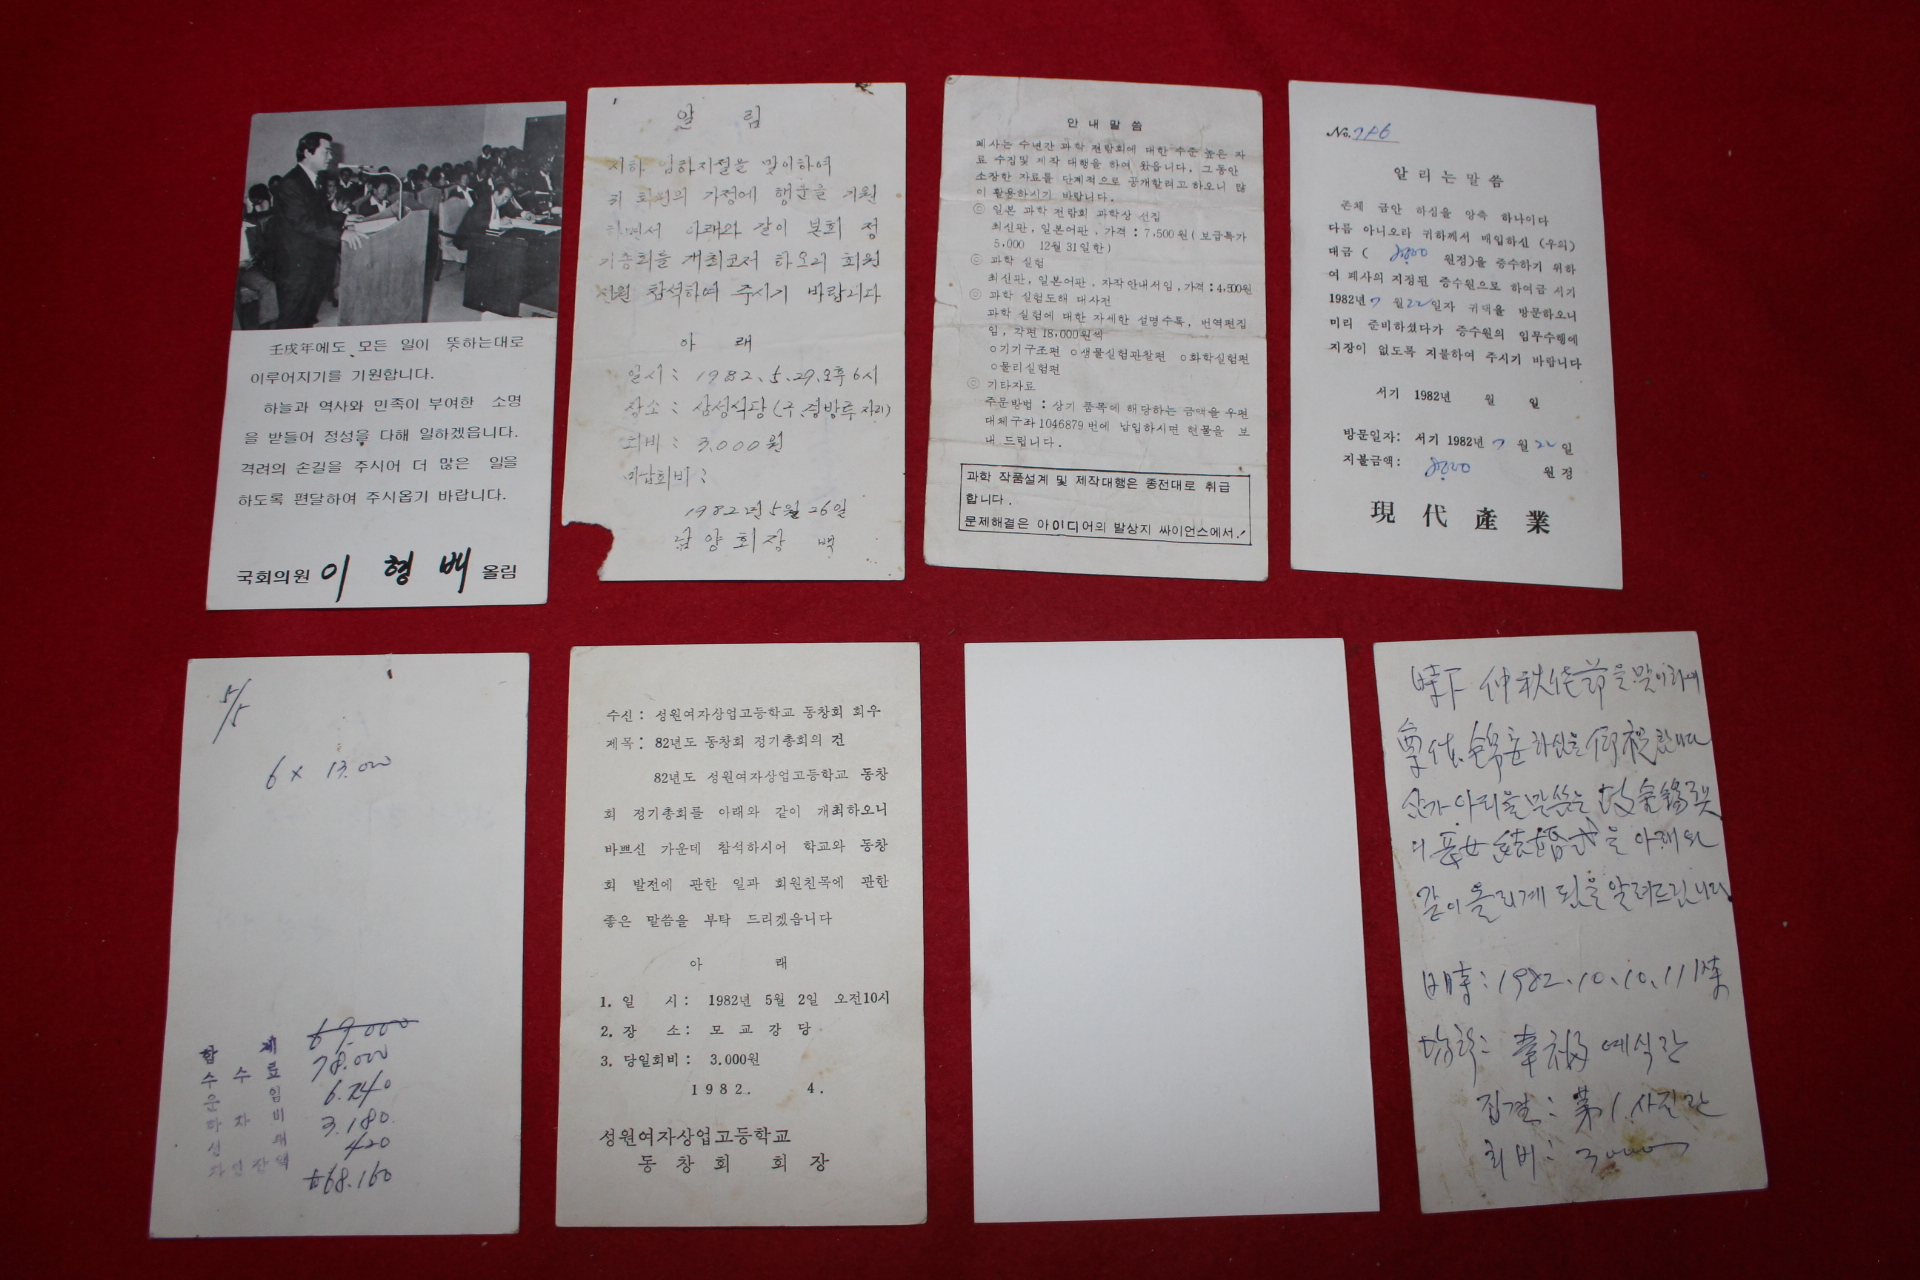 壬戌年에도 모든 일이 뜻하는대로
이루어지기를 기원합니다.
하늘과 역사와 민족이 부여한 소명
을 받들어 정성을 다해 일하겠읍니다.
격려의 손길을 주시어 더 많은 일을
하도록 편달하여 주시옵기 바랍니다.
국회의원 이 형 배 올림
알 림
시하 입하지절을 맞이하여
귀 회원의 가정에 행운을 기원
하면서 아래와 같이 본회 정
기총회를 개최코저 하오니 회원
참석하여 주시기 바랍니다
아 래
일시 : 1982. 5. 29. 오후 6시
장소 : 삼성식당 (구. 경방루 자리)
회비 : 3,000원
미납회비 :
1982년 5월 26일
남양회장 백
안 내 말 씀
폐사는 수년간 과학 전람회에 대한 수준 높은 자
료 수집및 제작 대행을 하여 왔읍니다. 그동안
소장한 자료를 단계적으로 공개할려고 하오니 많
이 활용하시기 바랍니다.
◎ 일본 과학 전람회 과학상 선집
최신판, 일본어판, 가격 : 7,500원 ( 보급특가
5,000 12월 31일한 )
◎ 과학 실험
최신판, 일본어판, 자작안내서임, 가격 : 4,500원
◎ 과학 실험도해 대사전
과학 실험에 대한 자세한 설명수록, 번역편집
임, 각편 18,000원씩
ㅇ기기구조편 ㅇ생물실험관찰편 ㅇ화학실험편
ㅇ물리실험편
◎ 기타자료
주문방법 : 상기 품목에 해당하는 금액을 우편
대체구좌 1046879 번에 납입하시면 현물을 보
내 드립니다.
과학 작품설계 및 제작대행은 종전대로 취급
합니다.
문제해결은 아이디어의 발상지 싸이언스에서 !
No. 786
알 리 는 말 씀
존체 금안 하심을 앙축 하나이다
다름 아니오라 귀하께서 매입하신 (우의)
대금 ( 8000 원정)을 증수하기 위하
여 폐사의 지정된 증수원으로 하여금 서기
1982년 7 월 22일자 귀댁을 방문하오니
미리 준비하셨다가 증수원의 임무수행에
지장이 없도록 지불하여 주시기 바랍니다
서기 1982년 월 일
방문일자: 서기 1982년 7 월 22 일
지불금액: 8000 원정
現 代 產 業
5/5
6 × 13.000
합 계 69.000
수 수 료 78.000
운 임 6.240
하 차 비 3.180.
선 대 420
차인잔액 ₩68.160
수신 : 성원여자상업고등학교 동창회 회우
제목 : 82년도 동창회 정기총회의 건
82년도 성원여자상업고등학교 동창
회 정기총회를 아래와 같이 개최하오니
바쁘신 가운데 참석하시어 학교와 동창
회 발전에 관한 일과 회원친목에 관한
좋은 말씀을 부탁 드리겠읍니다
아 래
1. 일 시 : 1982년 5월 2일 오전10시
2. 장 소 : 모 교 강 당
3. 당일회비 : 3.000원
1 9 8 2. 4.
성원여자상업고등학교
동 창 회 회 장
時下 仲秋佳節을 맞이하여
尊体 錦安하심을 仰祝합니다
알리올 말씀은 故金
의 長女 結婚式을 아래와
같이 올리게 됨을 알려드립니다
日時 : 1982. 10. 10. 11時
場所 : 幸福 예식관
집결 : 第1. 사진관
회비 : 3000